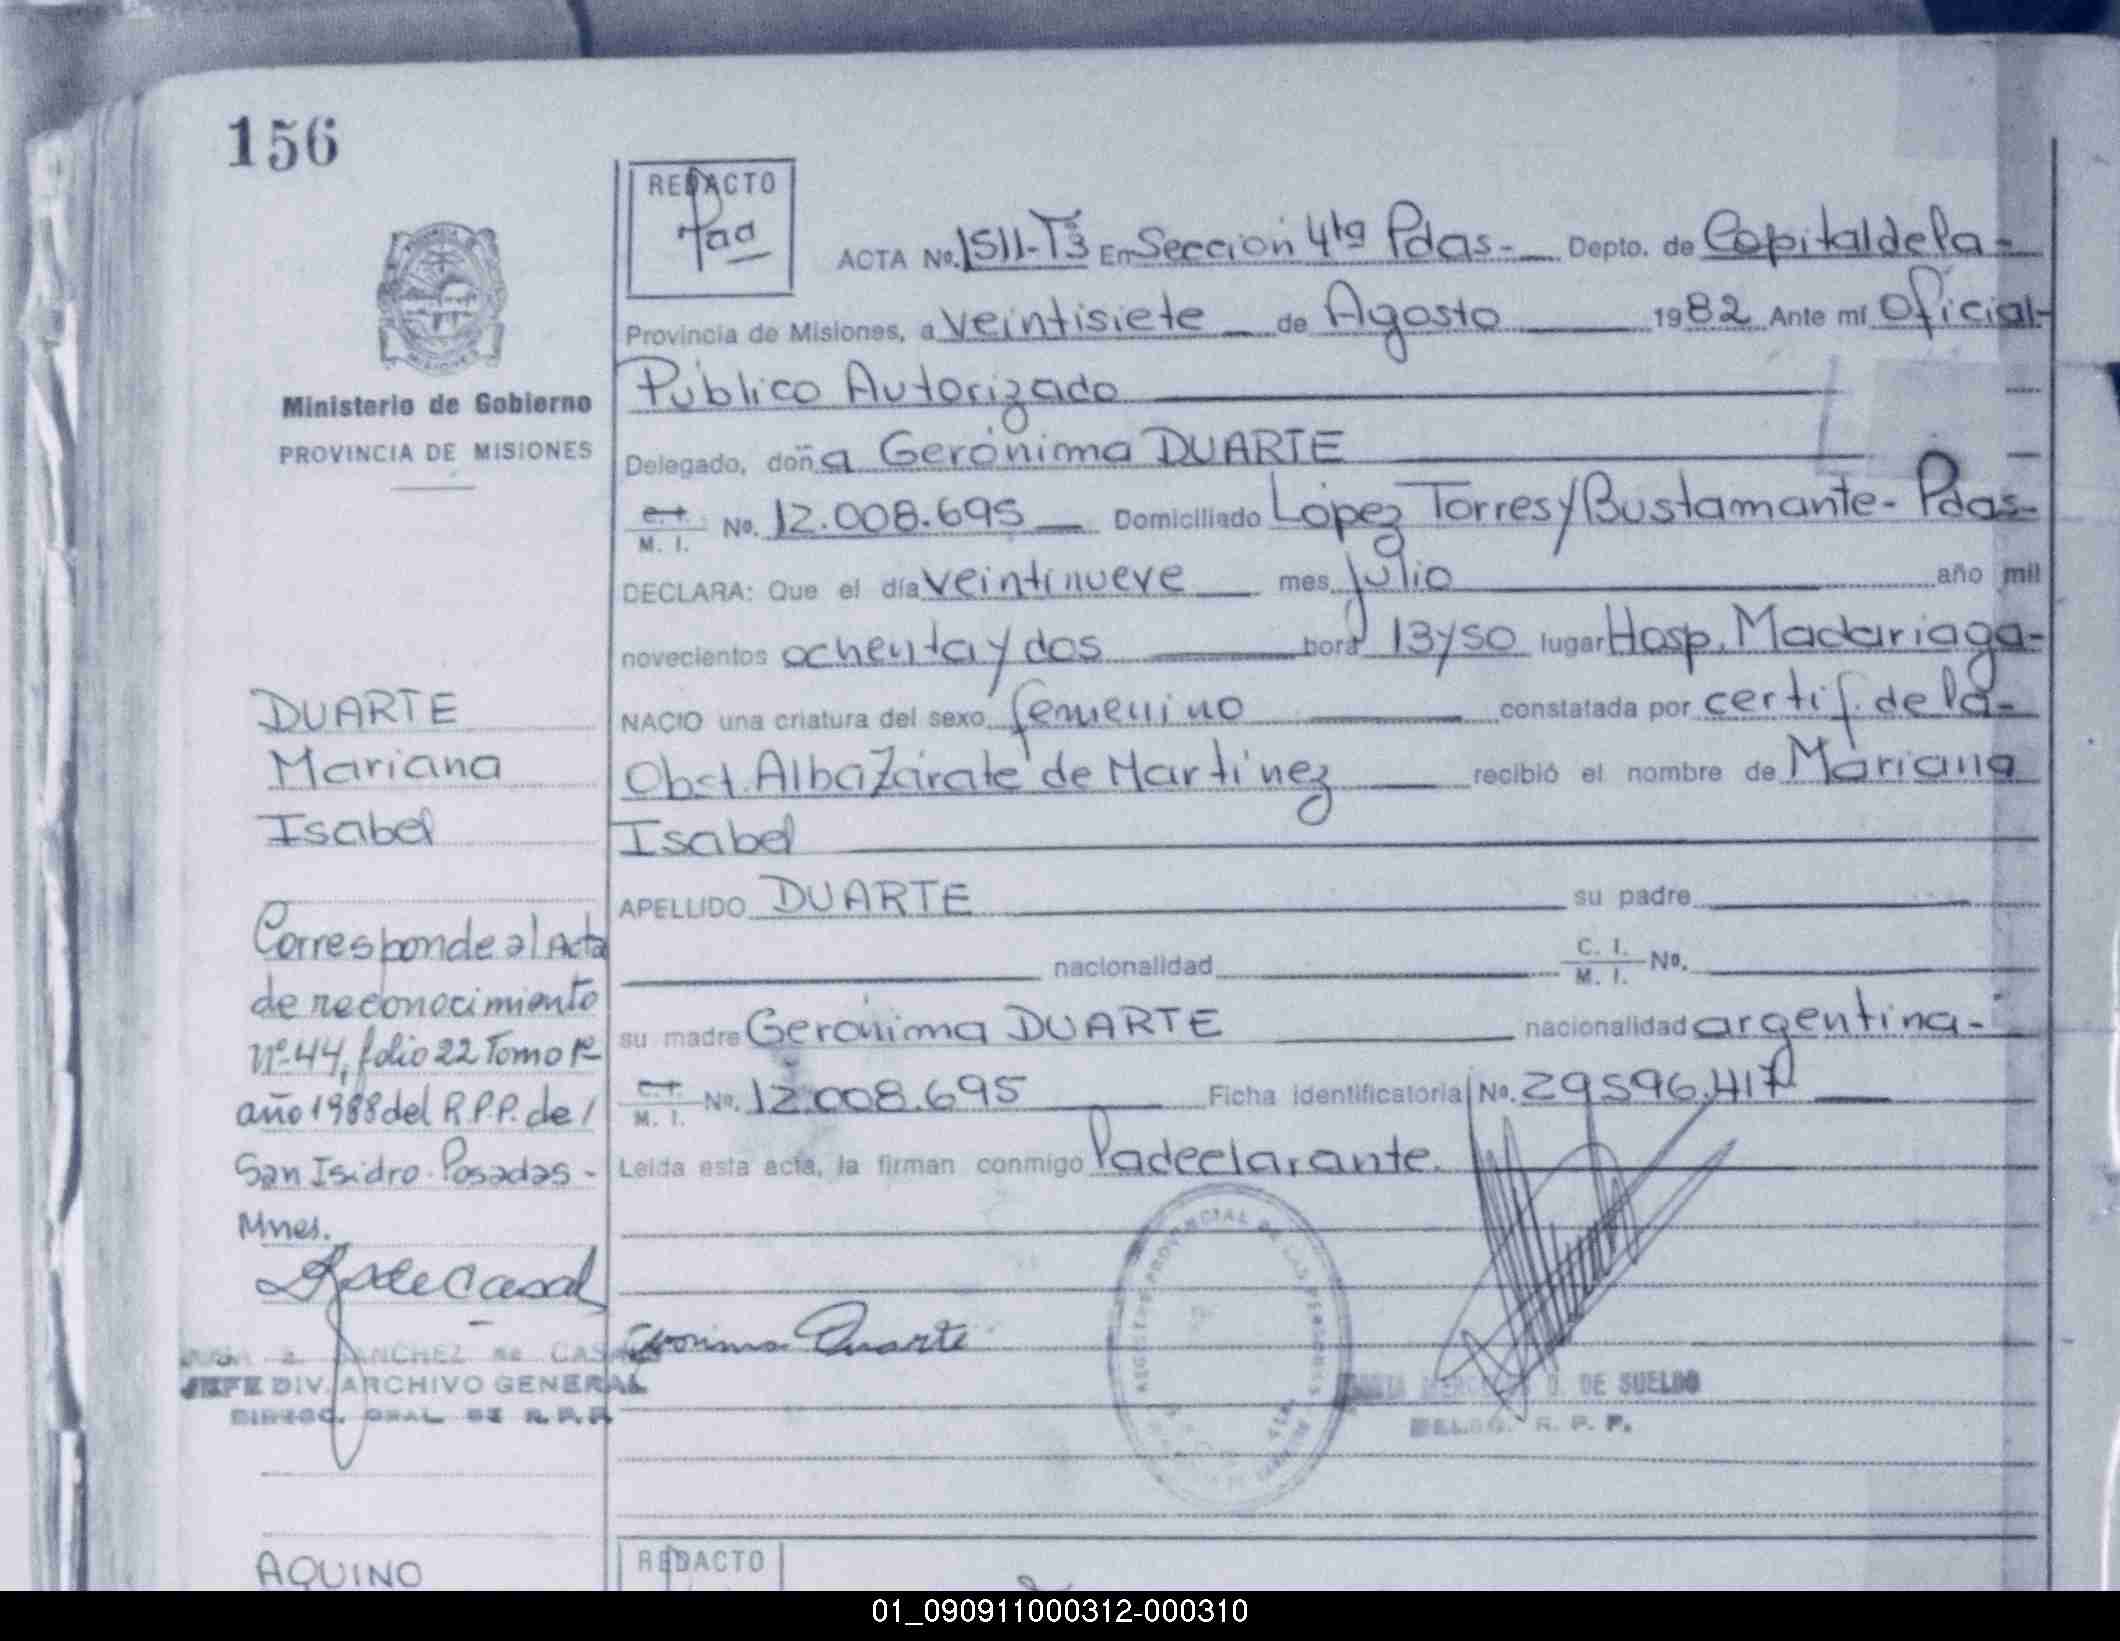 156
REDACTO
ACTA No. 1511-Tº3 En Sección 4ta Pdas- Depto. de Capital de la-
Provincia de Misiones, a veintisiete de Agosto 1982 Ante mí Oficial-
Público Autorizado
Ministerio de Gobierno
PROVINCIA DE MISIONES
Delegado, doña Gerónima DUARTE
C. I. M. I. No. 12.008.695 Domiciliado López Torres y Bustamante- Pdas-
DECLARA: Que el día veintinueve mes Julio año mil
novecientos ochenta y dos hora 13 y 50 lugar Hosp. Madariaga-
NACIO una criatura del sexo femenino constatada por certif. de la-
Obst. Alba Zárate de Martínez recibió el nombre de Mariana
Isabel
APELLIDO DUARTE su padre
nacionalidad C. I. M. I. No.
su madre Gerónima DUARTE nacionalidad argentina-
C. I. M. I. No. 12.008.695 Ficha identificatoria No. 29.596.417
Leída esta acta, la firman conmigo la declarante.
DUARTE
Mariana
Isabel
Corresponde al Acta
de reconocimiento
nº-44, folio 22 Tomo 1º
año 1988 del R.P.P. de /
San Isidro. Posadas-
Mnes.
de Casal
SANCHEZ de CASAL
JEFE DIV. ARCHIVO GENERAL
DIREC. GRAL DE R.P.P.
Duarte
REGISTRO PROVINCIAL DE LAS PERSONAS
MERCEDES D. DE SUELDO
DELEG. R. P. P.
AQUINO
REDACTO
01_090911000312-000310